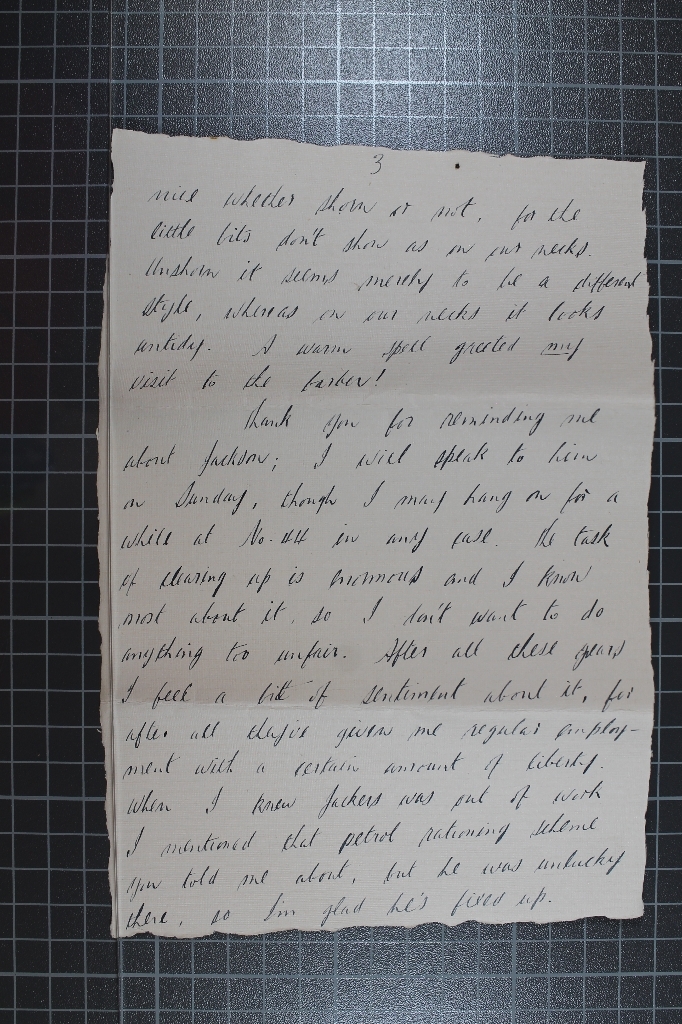 3
nice whether shorn or not, for the
little bits don't show as on our necks.
Unshorn it seems merely to be a different
style, whereas on our necks it looks
untidy. A warm spell greeted my
visit to the barber!
Thank you for reminding me
about Jackson; I will speak to him
on Sunday, though I may hang on for a
while at No. 44 in any case. The task
of clearing up is enormous and I know
most about it, so I don't want to do
anything too unfair. After all these years
I feel a bit of sentiment about it, for
after all given me regular employ-
ment with a certain amount of liberty.
When I knew Jackers was out of work
I mentioned that petrol rationing scheme
you told me about, but he was unlucky
there, so I'm glad he's fixed up.